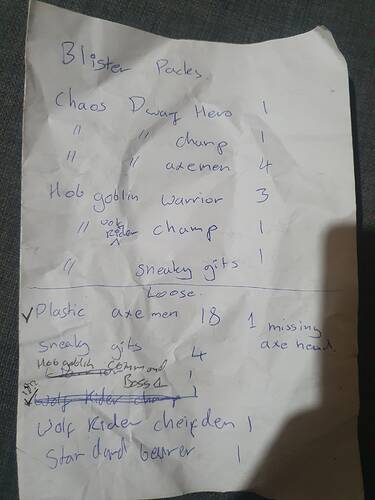 Blister Packs.
Chaos Dwarf Hero 1
" " champ 1
" " axemen 4
Hobgoblin Warrior 3
" wolf Rider champ 1
" sneaky gits 1
Loose.
✓ Plastic axemen 18 1 missing axe head.
sneaky gits 4
Hobgoblin Command 1
Boss 1
Wolf Rider champ 1
Wolf Rider cheifden 1
Standard bearer 1